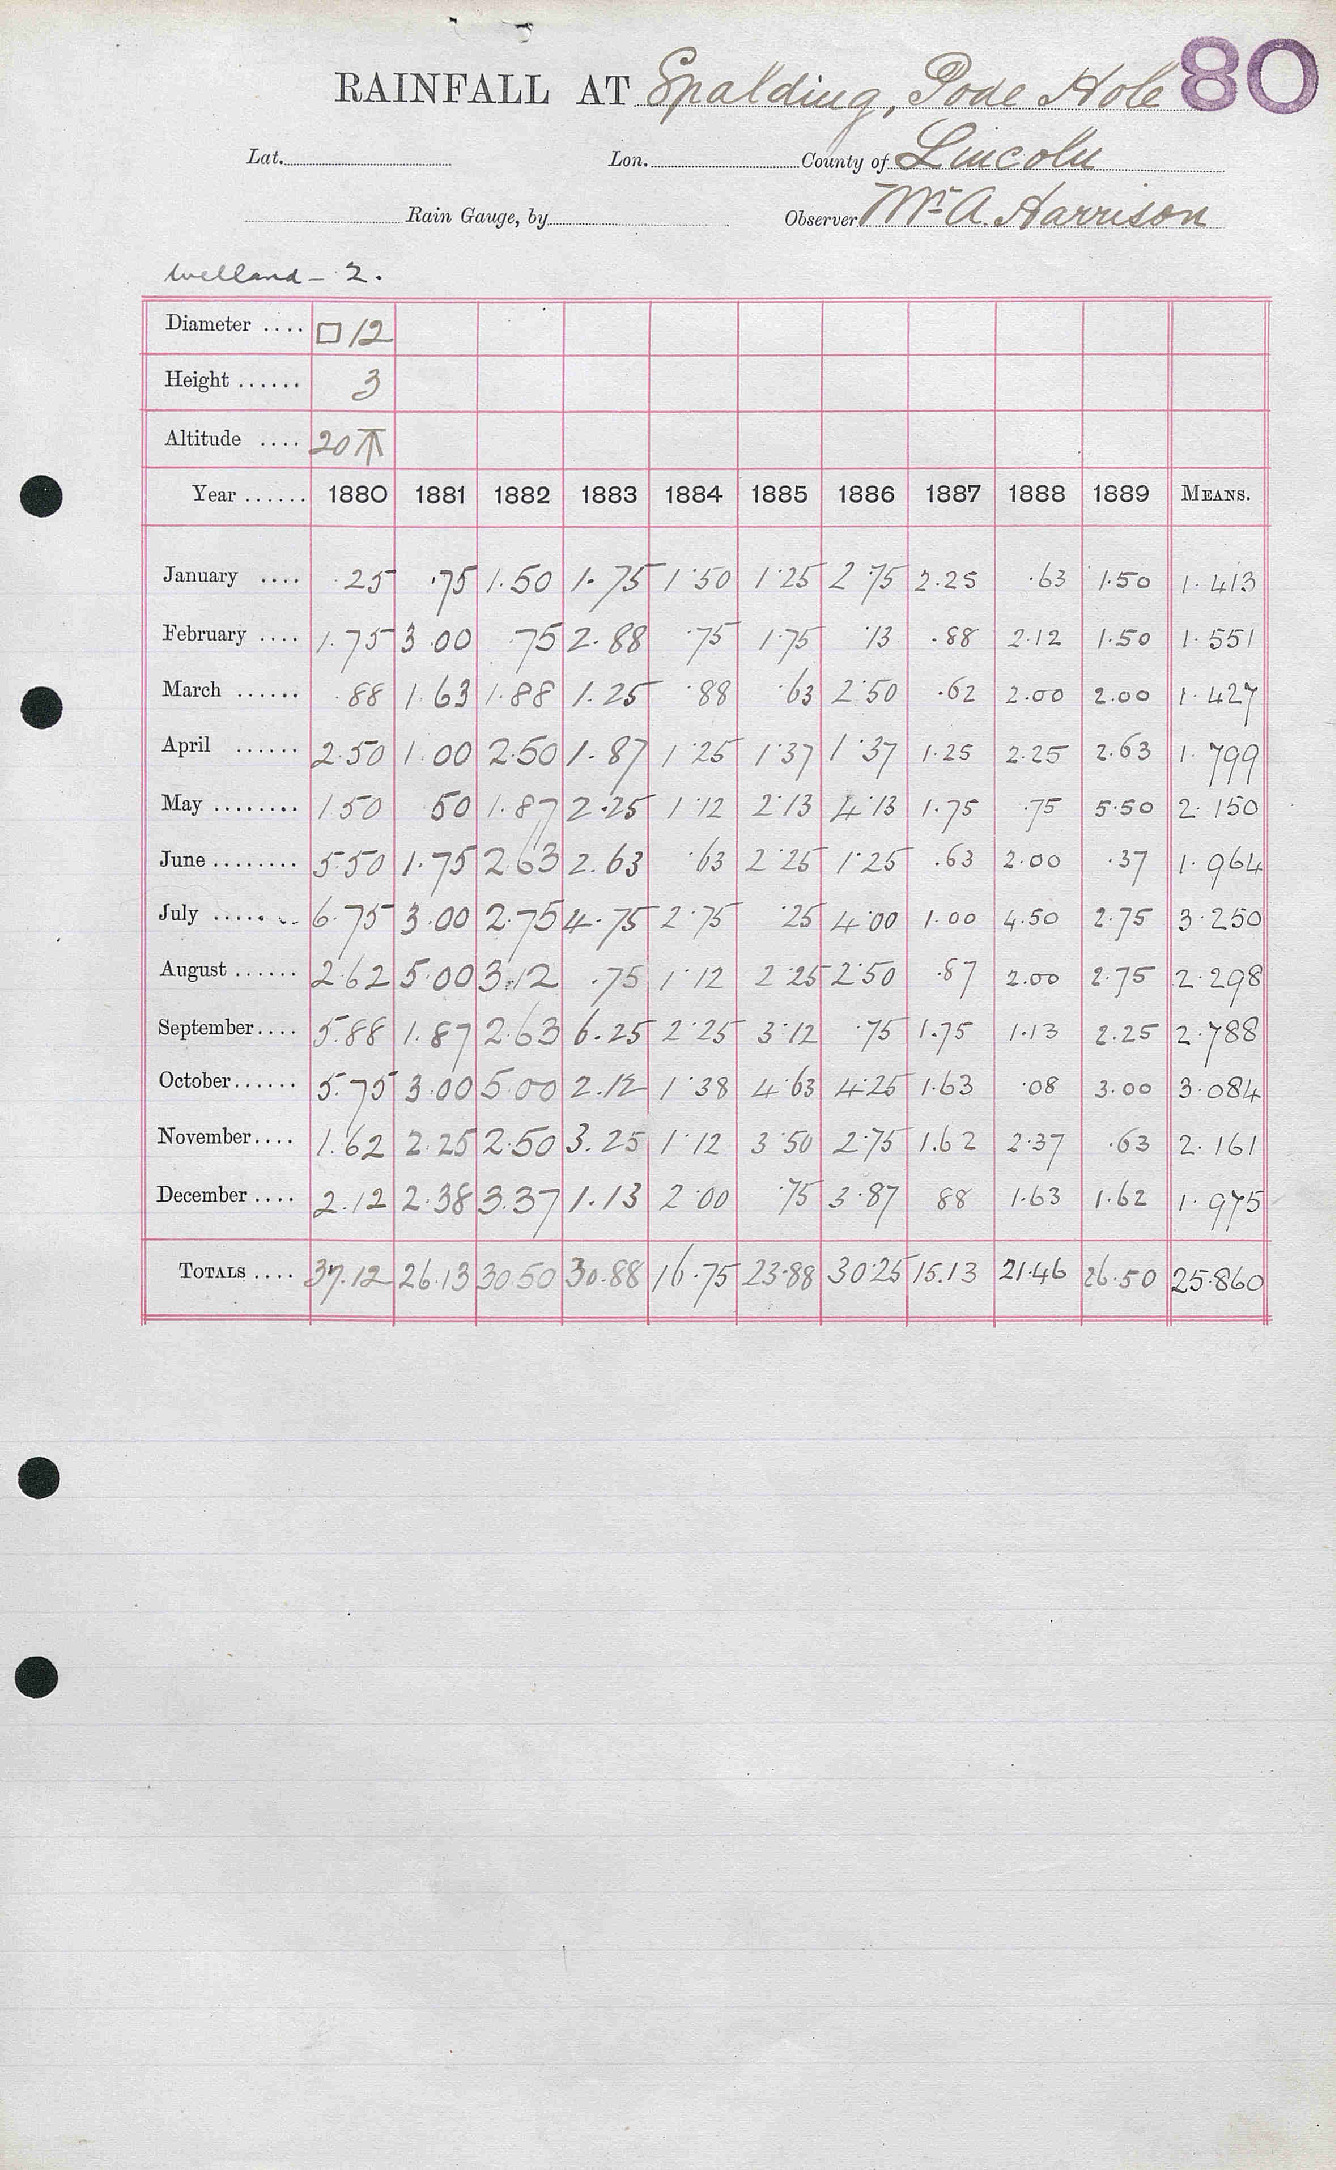 RAINFALL AT Spalding, Pode Hole 80
Lat. Lon. County of Lincoln
Rain Gauge, by Observer Mr A. Harrison
Welland - 2.
Diameter .... □ 12
Height ...... 3
Altitude .... 20
Year ...... 1880 1881 1882 1883 1884 1885 1886 1887 1888 1889 MEANS.
January .... .25 .75 1.50 1.75 1.50 1.25 2.75 2.25 .63 1.50 1.413
February .... 1.75 3.00 .75 2.88 .75 1.75 .13 .88 2.12 1.50 1.551
March ...... .88 1.63 1.88 1.25 .88 .63 2.50 .62 2.00 2.00 1.427
April ...... 2.50 1.00 2.50 1.87 1.25 1.37 1.37 1.25 2.25 2.63 1.799
May ........ 1.50 50 1.87 2.25 1.12 2.13 4.13 1.75 .75 5.50 2.150
June ........ 5.50 1.75 2.63 2.63 .63 2.25 1.25 .63 2.00 .37 1.964
July ..... 6.75 3.00 2.75 4.75 2.75 .25 4.00 1.00 4.50 2.75 3.250
August ...... 2.62 5.00 3.12 .75 1.12 2.25 2.50 .87 2.00 2.75 2.298
September .... 5.88 1.87 2.63 6.25 2.25 3.12 .75 1.75 1.13 2.25 2.788
October ...... 5.75 3.00 5.00 2.12 1.38 4.63 4.25 1.63 .08 3.00 3.084
November .... 1.62 2.25 2.50 3.25 1.12 3.50 2.75 1.62 2.37 .63 2.161
December .... 2.12 2.38 3.37 1.13 2.00 .75 3.87 88 1.63 1.62 1.975
TOTALS .... 37.12 26.13 30.50 30.88 16.75 23.88 30.25 15.13 21.46 26.50 25.860